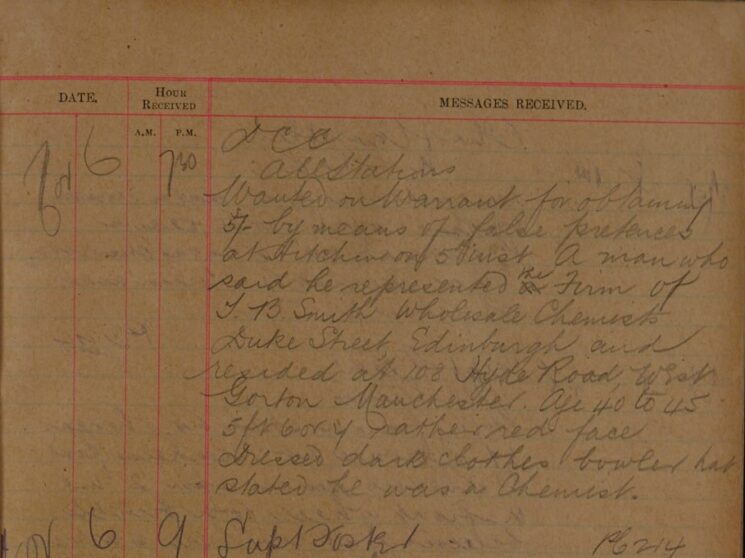 DATE. HOUR RECEIVED MESSAGES RECEIVED.
A.M. P.M.
Nov 6 7 30 D C C
All Stations
Wanted on Warrant for obtaining
5/- by means of false pretences
at Hitchin on 5th inst. A man who
said he represented the Firm of
T. B. Smith Wholesale Chemists
Duke Street, Edinburgh and
resided at 102 Hyde Road, West
Gorton Manchester. Age 40 to 45
5ft 6 or 7 rather red face
Dressed dark clothes bowler hat
stated he was a Chemist.
Nov 6 9 Supt Foster PC 214